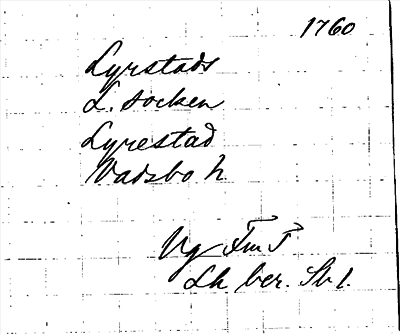 1760
Lyrstads
L. socken
Lyrestad
Vadsbo h
Vg FmF
Lh ber. Sh 1.